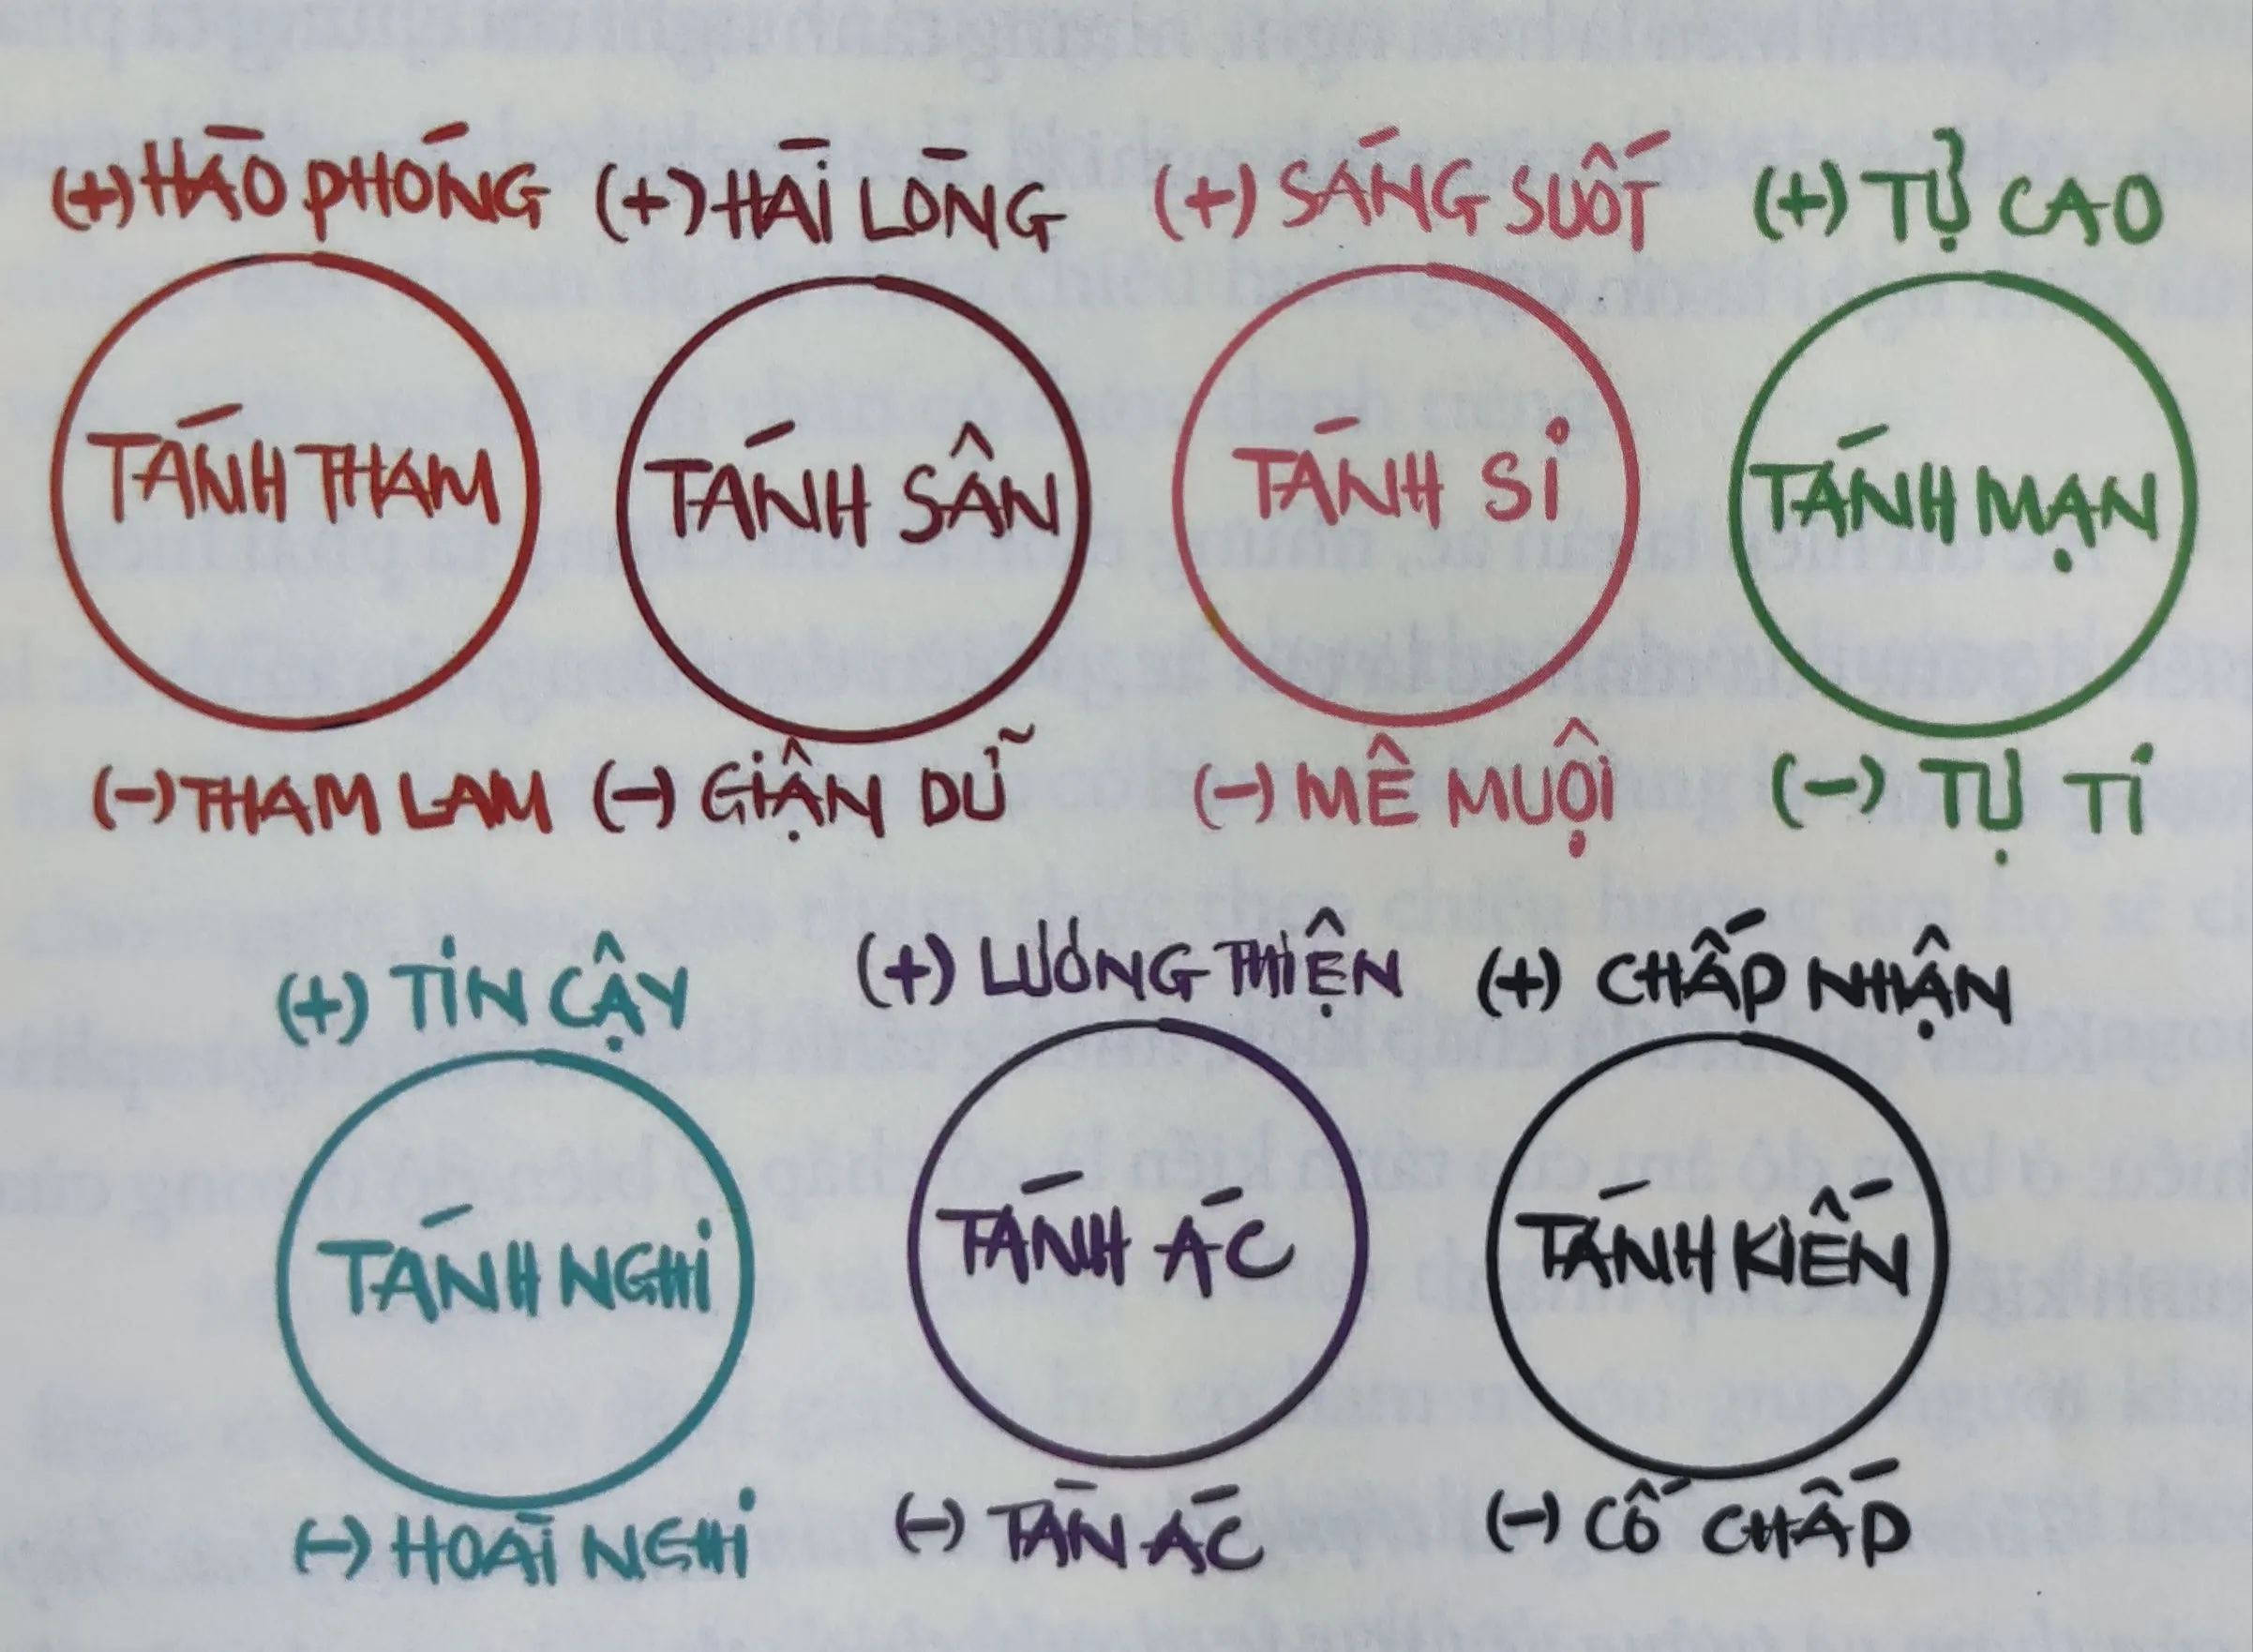 (+) HÀO PHÓNG (+) HÀI LÒNG (+) SÁNG SUỐT (+) TỰ CAO
TÁNH THAM TÁNH SÂN TÁNH SI TÁNH MẠN
(-) THAM LAM (-) GIẬN DỮ (-) MÊ MUỘI (-) TỰ TI
(+) TIN CẬY (+) LƯƠNG THIỆN (+) CHẤP NHẬN
TÁNH NGHI TÁNH ÁC TÁNH KIẾN
(-) HOÀI NGHI (-) TÀN ÁC (-) CỐ CHẤP